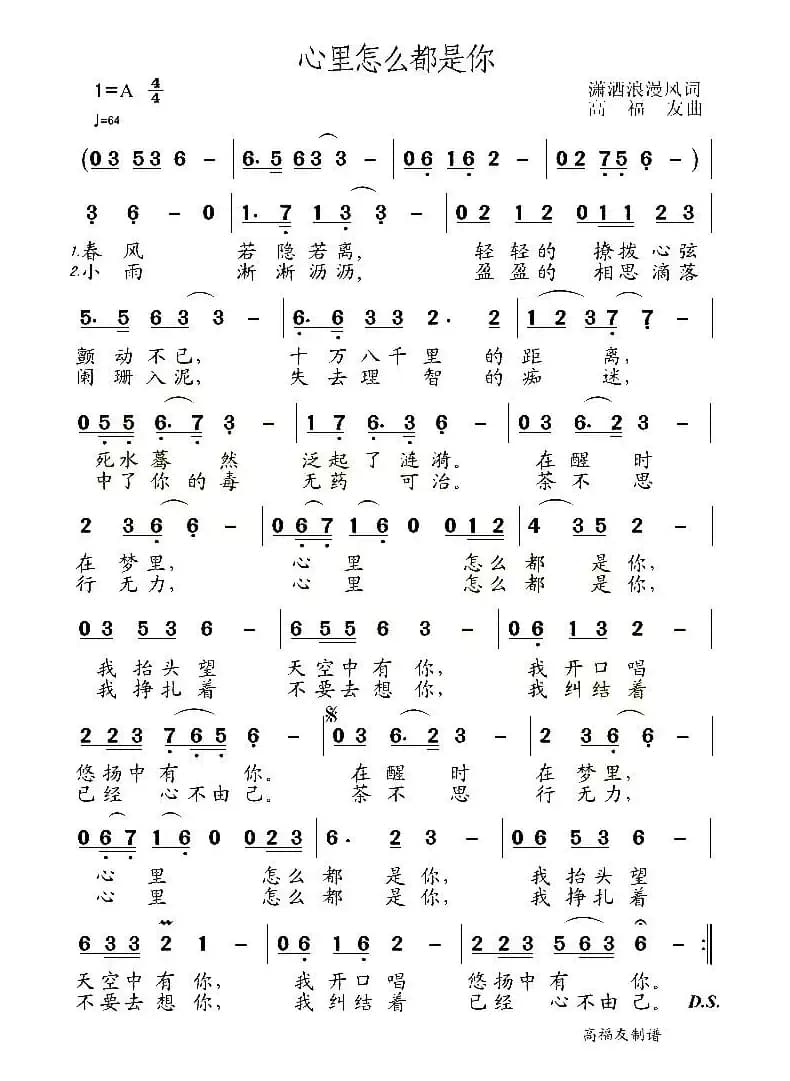 心里怎么都是你
1=A 4/4
潇洒浪漫风词
♩=64
高福友曲
(0 3 5 3 6 - | 6· 5 6 3 3 - | 0 6 1 6 2 - | 0 2 7 5 6 - ) |
3 6 - 0 | 1· 7 1 3 3 - | 0 2 1 2 0 1 1 2 3 |
1.春风 若隐若离, 轻轻的 撩拨心弦
2.小雨 淅淅沥沥, 盈盈的 相思滴落
5· 5 6 3 3 - | 6· 6 3 3 2· 2 | 1 2 3 7 7 - |
颤动不已, 十万八千里 的距离,
阑珊入泥, 失去理智 的痴迷,
0 5 5 6· 7 3 - | 1 7 6· 3 6 - | 0 3 6· 2 3 - |
死水蓦然 泛起了涟漪。 在醒时
中了你的毒 无药可治。 茶不思
2 3 6 6 - | 0 6 7 1 6 0 0 1 2 | 4 3 5 2 - |
在梦里, 心里 怎么都是你,
行无力, 心里 怎么都是你,
0 3 5 3 6 - | 6 5 5 6 3 - | 0 6 1 3 2 - |
我抬头望 天空中有你, 我开口唱
我挣扎着 不要去想你, 我纠结着
2 2 3 7 6 5 6 - | 0 3 6· 2 3 - | 2 3 6 6 - |
悠扬中有你。 在醒时 在梦里,
已经心不由己。 茶不思 行无力,
0 6 7 1 6 0 0 2 3 | 6· 2 3 - | 0 6 5 3 6 - |
心里 怎么都是你, 我抬头望
心里 怎么都是你, 我挣扎着
6 3 3 2 1 - | 0 6 1 6 2 - | 2 2 3 5 6 3 6 - :||
天空中有你, 我开口唱 悠扬中有你。
不要去想你, 我纠结着 已经心不由己。 D.S.
高福友制谱